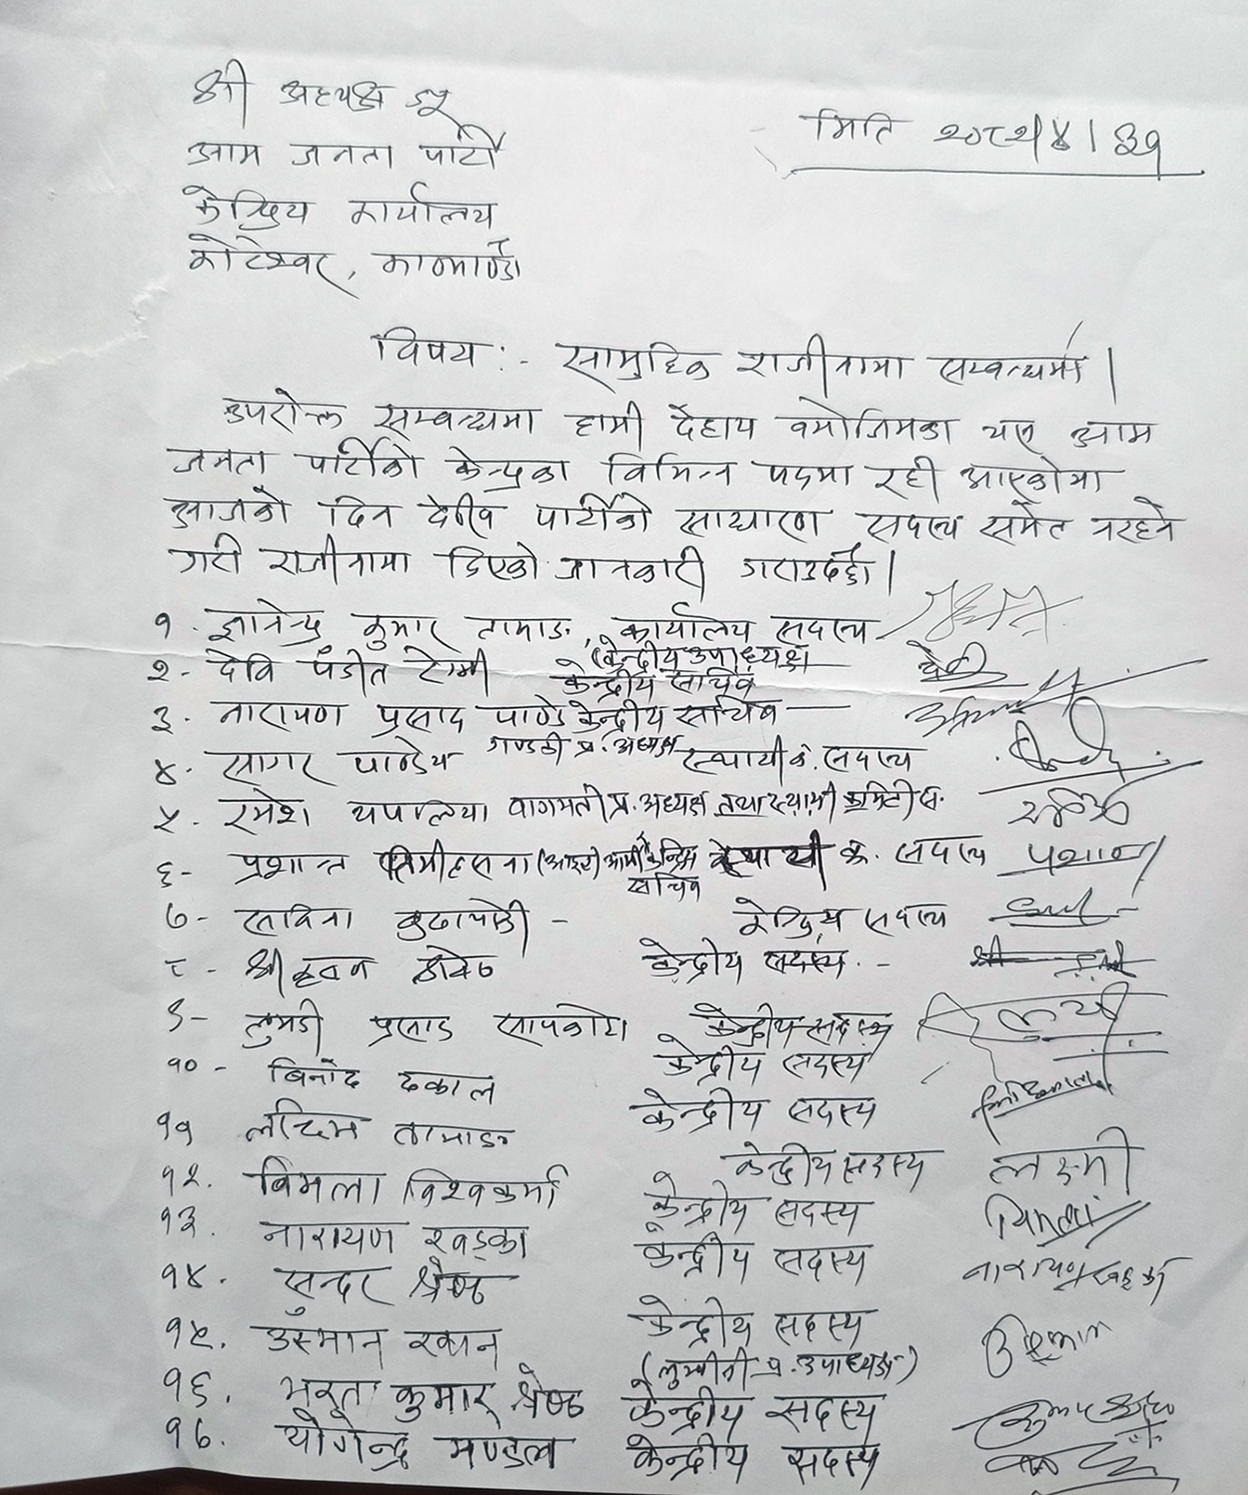 श्री अध्यक्ष ज्यू
आम जनता पार्टी
केन्द्रिय कार्यालय
कोटेश्वर, काठमाण्डौ
मिति २०८२।४।३१
विषय :- सामुहिक राजीनामा सम्बन्धमा।
उपरोक्त सम्बन्धमा हामी देहाय बमोजिमका यस आम
जनता पार्टीको केन्द्रका विभिन्न पदमा रही आएकोमा
आजको दिन देखि पार्टीको साधारण सदस्य समेत नरहने
गरी राजीनामा दिएको जानकारी गराउदछौं।
१. ज्ञानेन्द्र कुमार तामाङ, कार्यालय सदस्य
(केन्द्रीय उपाध्यक्ष
२- देवि पंडीत रेग्मी केन्द्रीय सचिव देवी
३. नारायण प्रसाद पाण्डे केन्द्रीय सचिव
४. सागर पाण्डेय गण्डकी प्र. अध्यक्ष स्थायी के. सदस्य
५. रमेश थपलिया वागमती प्र. अध्यक्ष तथा स्थायी कमिटी स.
६- प्रशान्त स्थायी के. सदस्य प्रशान्त
सचिव
७- सबिना बुढाथोकी - केन्द्रिय सदस्य
८- श्रीकृष्ण केन्द्रीय सदस्य. -
९- प्रसाद सापकोटा केन्द्रीय सदस्य
१०- बिनोद ढकाल केन्द्रीय सदस्य
११ लक्ष्मि तामाङ केन्द्रीय सदस्य
१२. बिमला विश्वकर्मा केन्द्रीय सदस्य लक्ष्मी
१३. नारायण खड्का केन्द्रीय सदस्य बिमला
१४. सुन्दर श्रेष्ठ केन्द्रीय सदस्य नारायण खड्का
१५. उस्मान खान केन्द्रीय सदस्य उस्मान
(लुम्बीनी प्र. उपाध्यक्ष)
१६. भरत कुमार श्रेष्ठ केन्द्रीय सदस्य
१७. योगेन्द्र मण्डल केन्द्रीय सदस्य